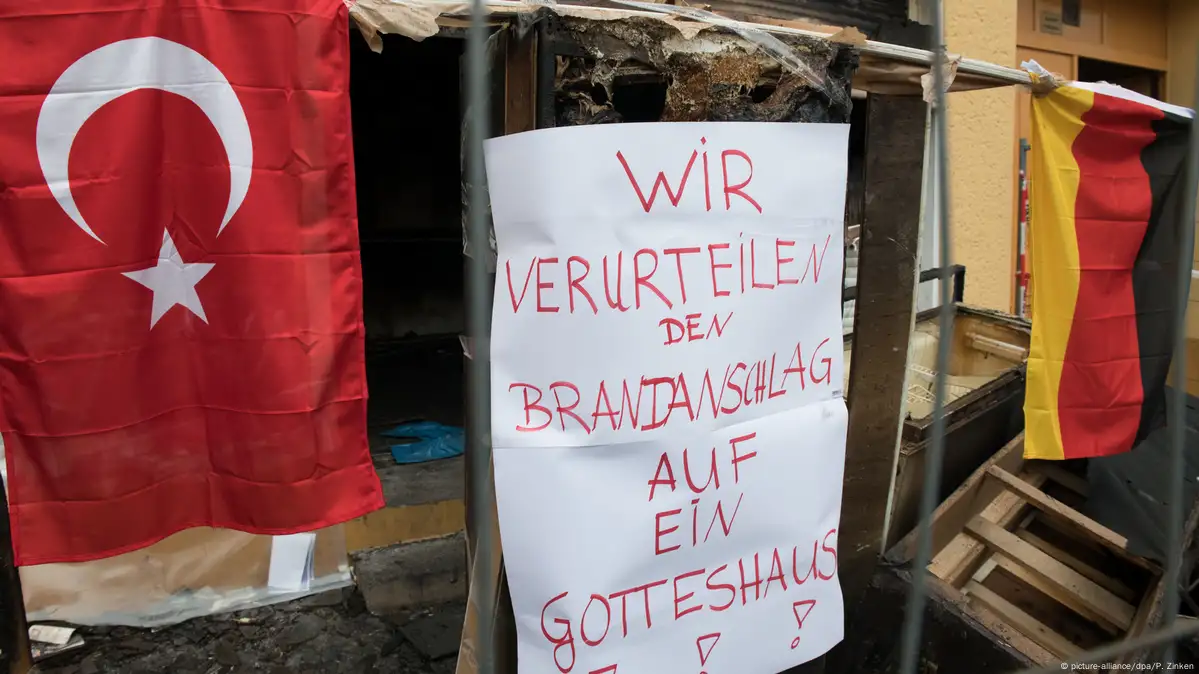 WIR
VERURTEILEN
DEN
BRANDANSCHLAG
AUF
EIN
GOTTESHAUS
! ! !
© picture-alliance/dpa/P. Zinken